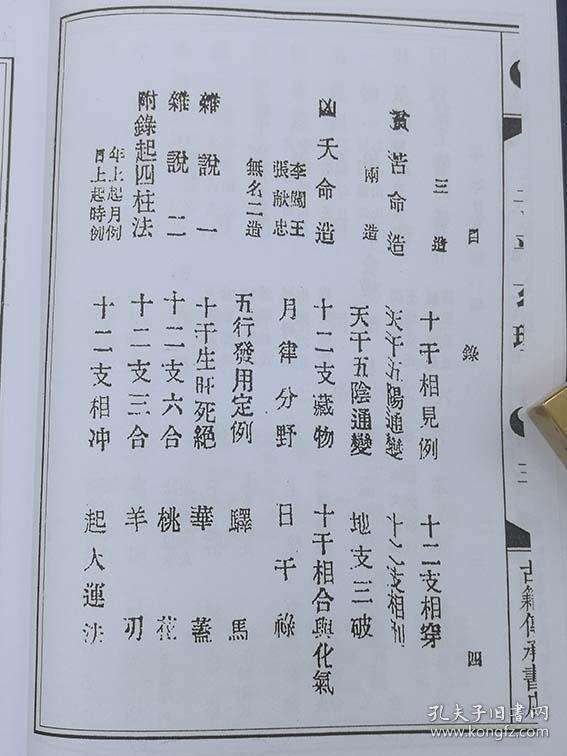 目錄 四
三造
貧苦命造
兩造
凶夭命造
李闖王
張献忠
無名二造
雜說一
雜說二
附錄起四柱法
年上起月例
日上起時例
十干相見例
天干五陽通變
天干五陰通變
十二支藏物
月律分野
五行發用定例
十干生旺死絕
十二支六合
十二支三合
十二支相冲
十二支相穿
十二支相刑
地支三破
十干相合與化氣
日干祿
驛馬
華蓋
桃花
羊刃
起大運法
古籍傳承書店
孔夫子旧书网